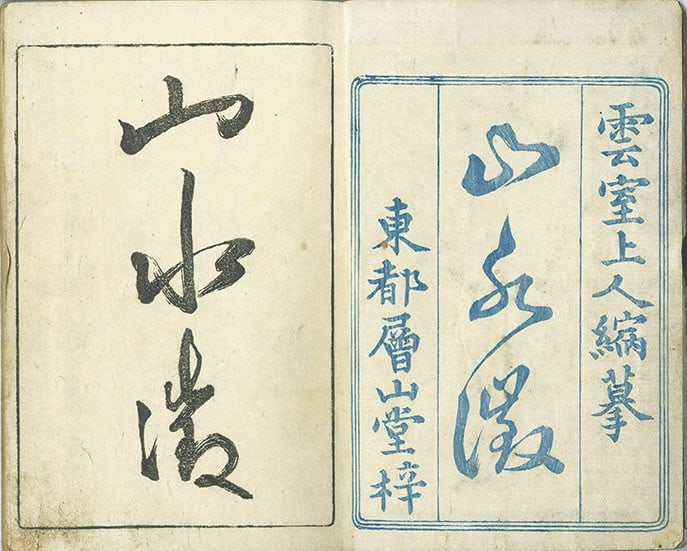 雲室上人縮摹
山水徴
東都層山堂梓
山水徴